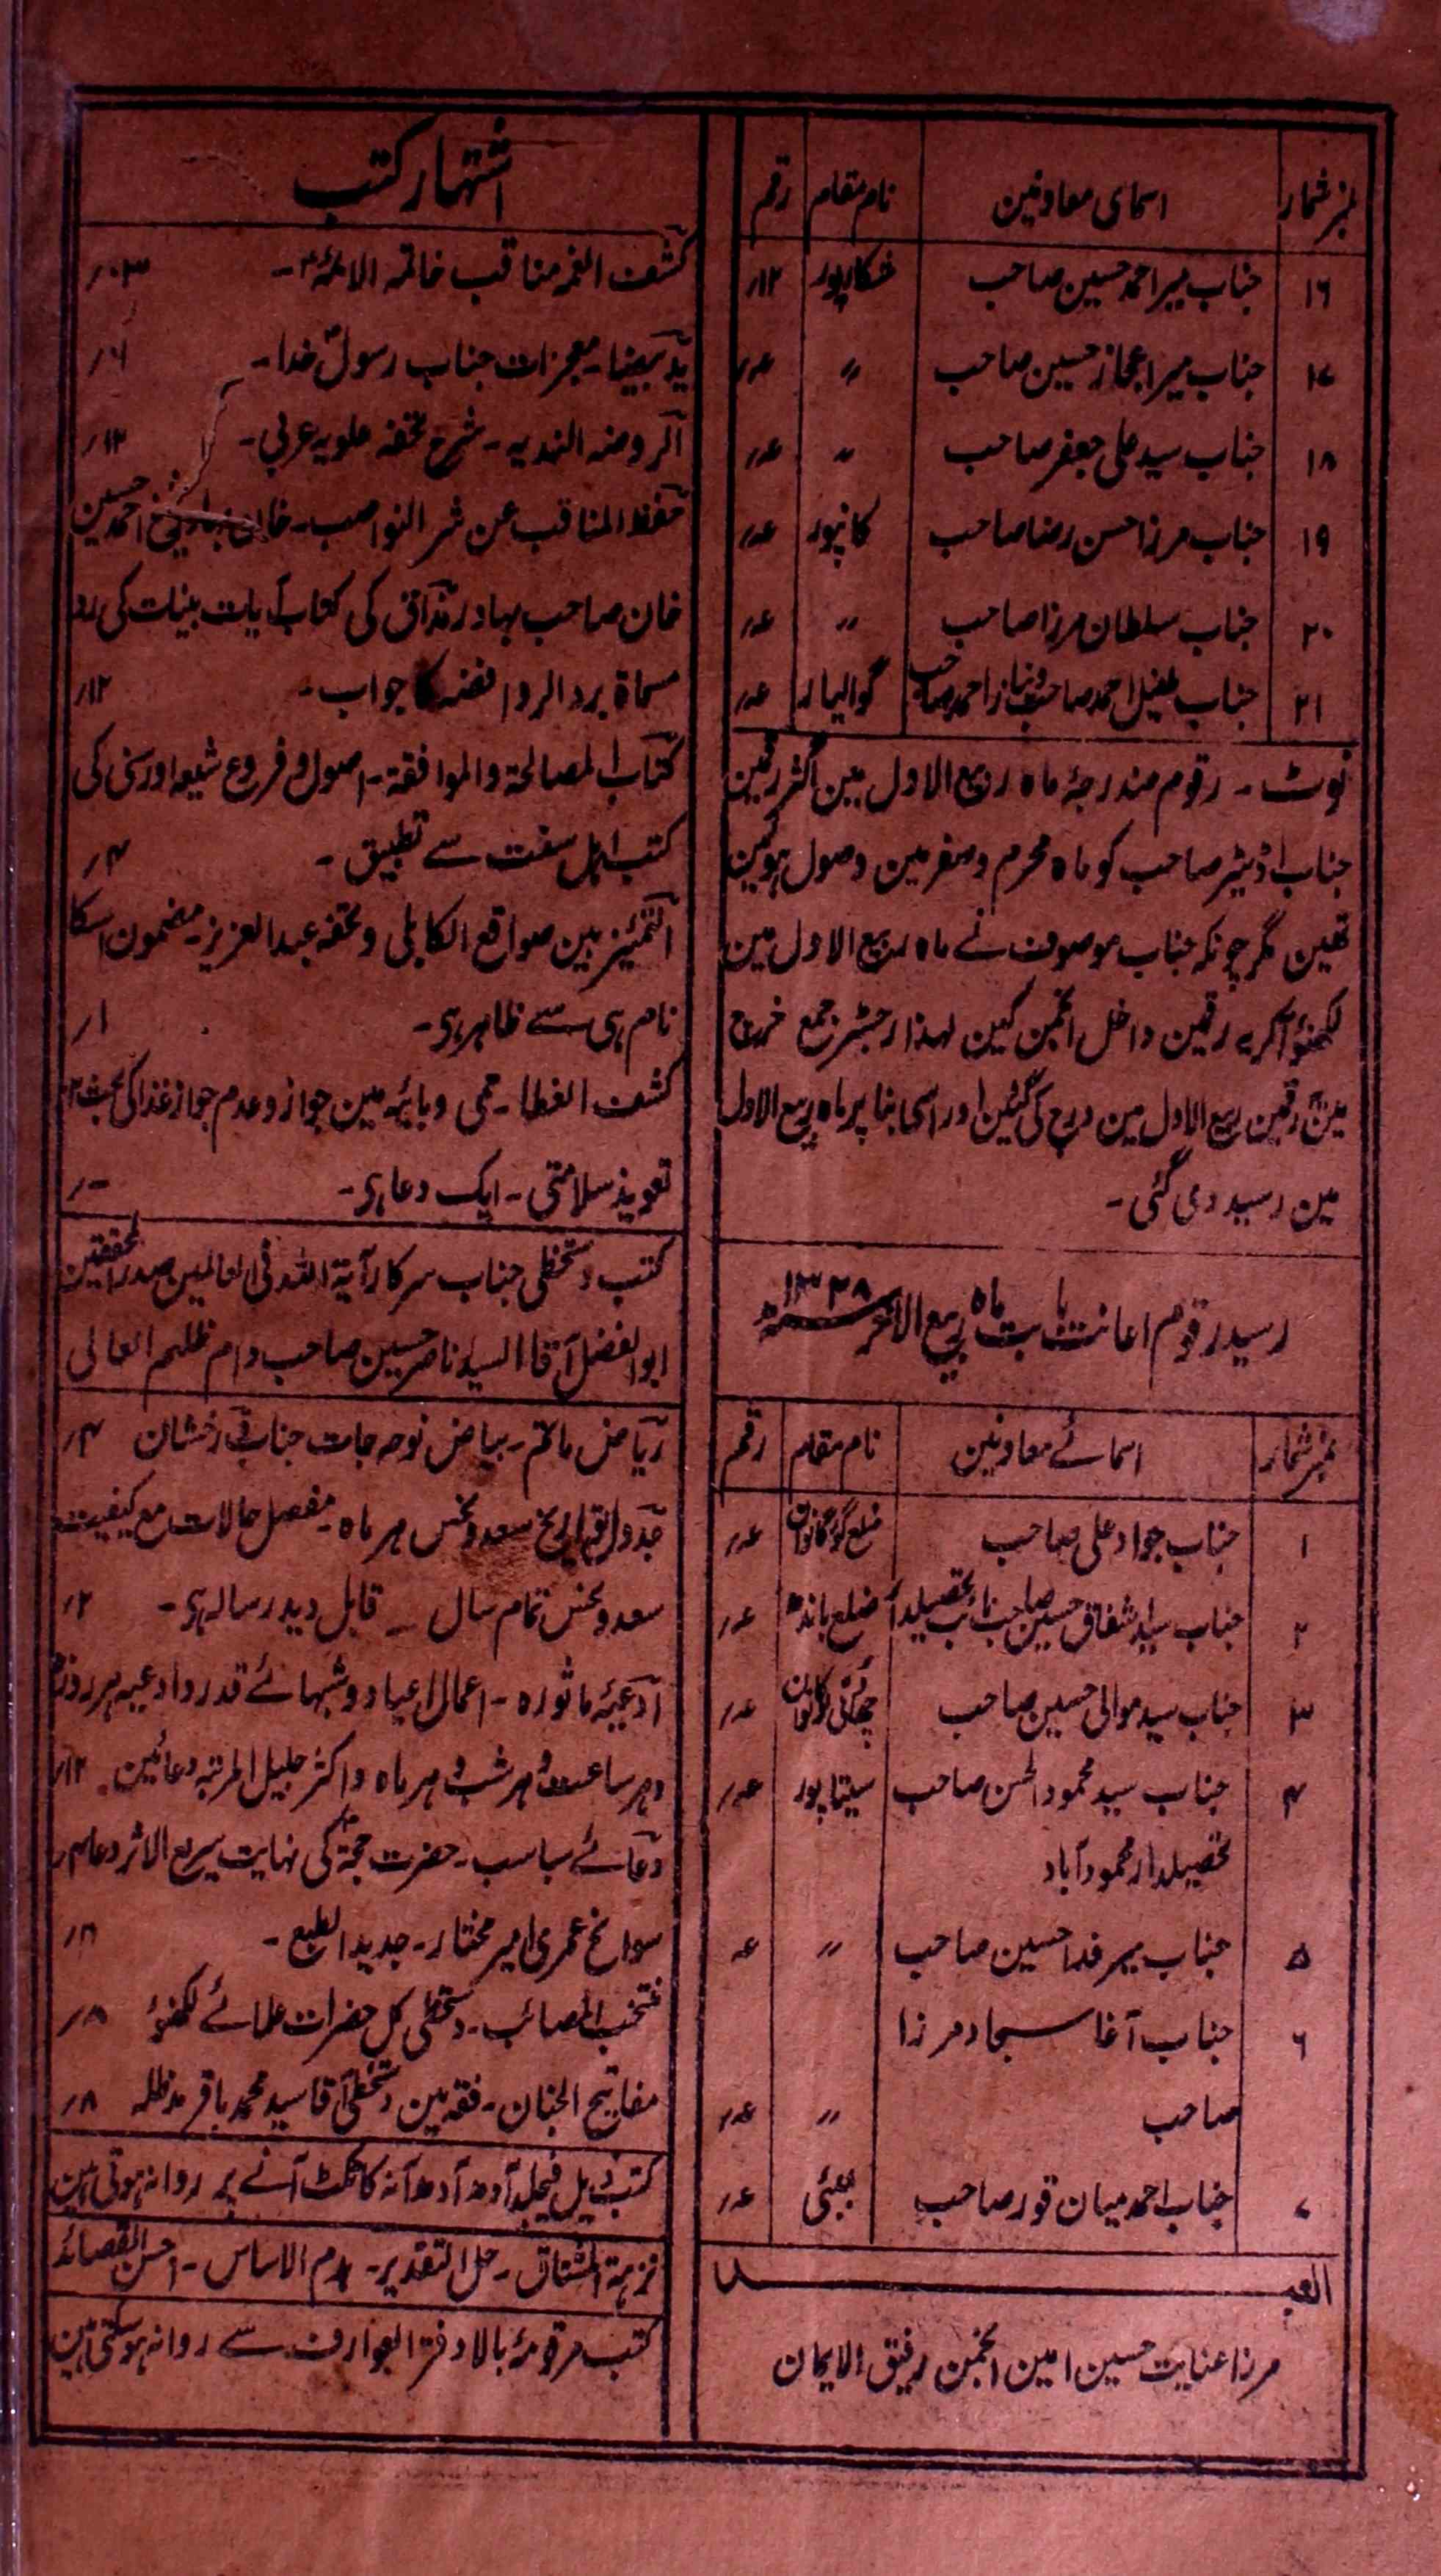 نمبر شمار اسمای معاونین نام مقام رقم
۱۶ جناب میر احمد حسین صاحب شکارپور ۱۲/
۱۷ جناب میر اعجاز حسین صاحب // عہ/
۱۸ جناب سید علی جعفر صاحب // عہ/
۱۹ جناب مرزا حسن رضا صاحب کانپور عہ/
۲۰ جناب سلطان مرزا صاحب // عہ/
۲۱ جناب طفیل احمد صاحب و نیاز احمد صاحب گوالیار عہ/
نوٹ - رقوم مندرجۂ ماہ ربیع الاول مین اکثر رقمین
جناب اڈیٹر صاحب کو ماہ محرم و صفر مین وصول ہوئین
تھین مگر چونکہ جناب موصوف نے ماہ ربیع الاول مین
لکھنؤ آکر یہ رقمین داخل انجمن کین لہذا رجسٹر جمع خرچ
مین رقمین ربیع الاول مین درج کی گئین اور اسی بنا پر ماہ ربیع الاول
مین رسید دی گئی -
رسید رقوم اعانت بابت ماہ ربیع الآخر ۱۳۲۸
نمبر شمار اسمائے معاونین نام مقام رقم
۱ جناب جواد علی صاحب ضلع گوڑگانوان عہ/
۲ جناب سید اشفاق حسین صاحب نائب تحصیلدار ضلع باندہ عہ/
۳ جناب سید موالی حسین صاحب عہ/
۴ جناب سید محمود الحسن صاحب سیتاپور عہ/
تحصیلدار محمودآباد
۵ جناب میر فدا حسین صاحب // عہ
۶ جناب آغا سجاد مرزا
صاحب // عہ/
۷ جناب احمد میان قور صاحب بمبئی عہ/
العبد
مرزا عنایت حسین امین انجمن رفیق الایمان
اشتہار کتب
کشف الغمہ مناقب خاتمہ الائمہ - ۳/
ید بیضا - معجزات جناب رسول خدا - ۶/
الروضہ الندیہ - شرح تحفہ علویہ عربی - ۱۲/
حفظ المناقب عن شر النواصب - خان بہادر شیخ احمد حسین
خان صاحب بہادر مذاق کی کتاب آیات بینات کی رد
مسماۃ برد الروافضہ کا جواب - ۱۲/
کتاب المصالحۃ والموافقۃ - اصول و فروع شیعہ اور سنی کی
کتب اہل سنت سے تطبیق - ۴/
التمئیز بین صواقع الکابلی و تحفہ عبد العزیز - مضمون اسکا
نام ہی سے ظاہر ہی - ۱/
کشف الغطا - حمی و بائیہ مین جواز و عدم جواز غذا کی بحث ۲
تعویذ سلامتی - ایک دعا ہی - -/
کتب دستخطی جناب سرکار آیۃ اللہ فی العالمین صدر المحققین
ابو الفضل آقا السید ناصر حسین صاحب دام ظلہم العالی
ریاض ماتم - بیاض نوحہ جات جناب رخشان ۴/
جدول تواریخ سعد و نحس ہر ماہ - مفصل حالات مع کیفیت
سعد و نحس تمام سال - قابل دید رسالہ ہی - ۲/
ادعیۂ ماثورہ - اعمال اعیاد و شبہائے قدر و ادعیہ ہر روزہ
و ہر ساعت و ہر شب و ہر ماہ و اکثر جلیل المرتبہ دعائین - ۱۲/
دعائے سباسب - حضرت حجۃ کی نہایت سریع الاثر دعا ہی
سوانح عمری امیر مختار - جدید الطبع - ۸/
منتخب المصائب - دستخطی کل حضرات علمائے لکھنؤ ۸/
مفاتیح الجنان - فقہ مین دستخطی آقا سید محمد باقر مد ظلہ ۸/
کتب ذیل فیجلد آدھ آدھ آنہ کا ٹکٹ آنے پر روانہ ہوتی ہین
نزہۃ المشتاق - حل التقدیر - ہدم الاساس - احسن القصائد
کتب مرقومۂ بالا دفتر العوارف سے روانہ ہوسکتی ہین